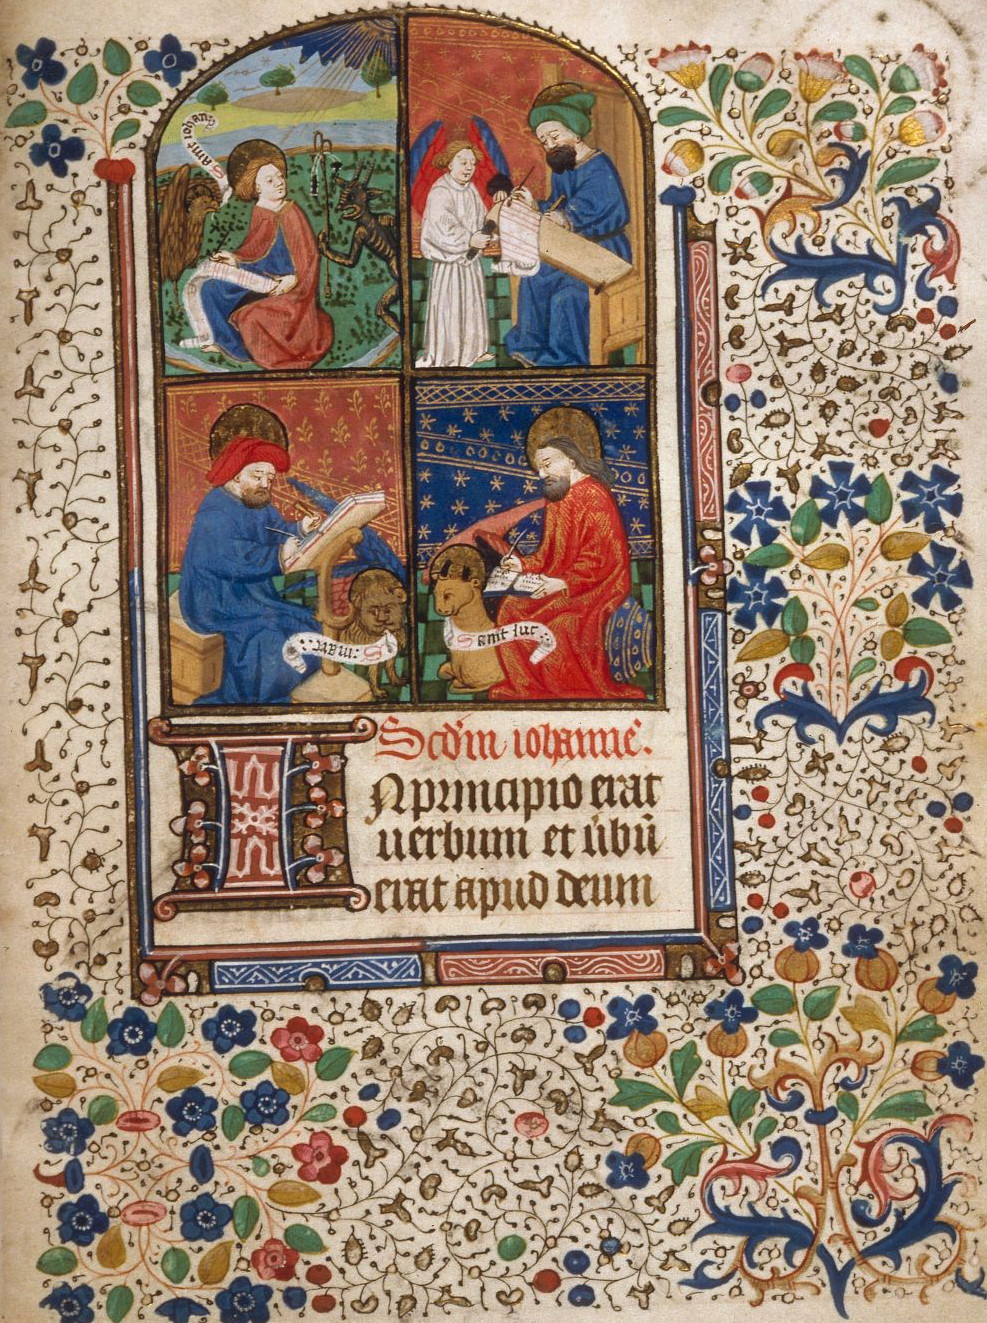 Sanct iohan
marcus
sanct luc
Scd'm iohanne.
IN principio erat
uerbum et ubu
erat apud deum